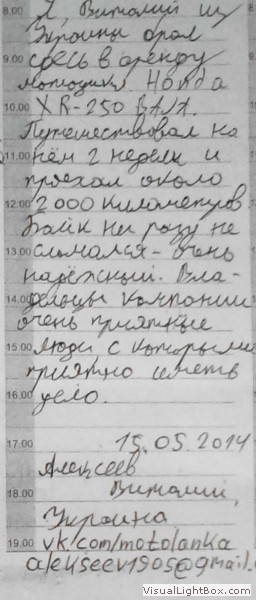 8.00 Я, Виталий из
Украины брал
9.00 здесь в аренду
мотоцикл Honda
10.00 XR-250 BAJA.
Путешествовал на
11.00 нём 2 недели и
проехал около
12.00 2000 километров.
Байк ни разу не
13.00 сломался - очень
надёжный. Вла-
14.00 дельцы компании
очень приятные
15.00 люди с которыми
приятно иметь
16.00 дело.
17.00 15.05.2014
Алексеев
18.00 Виталий,
Украина
19.00 vk.com/motolanka
alekseev1905@gmail.
www.JustViewLogo.com